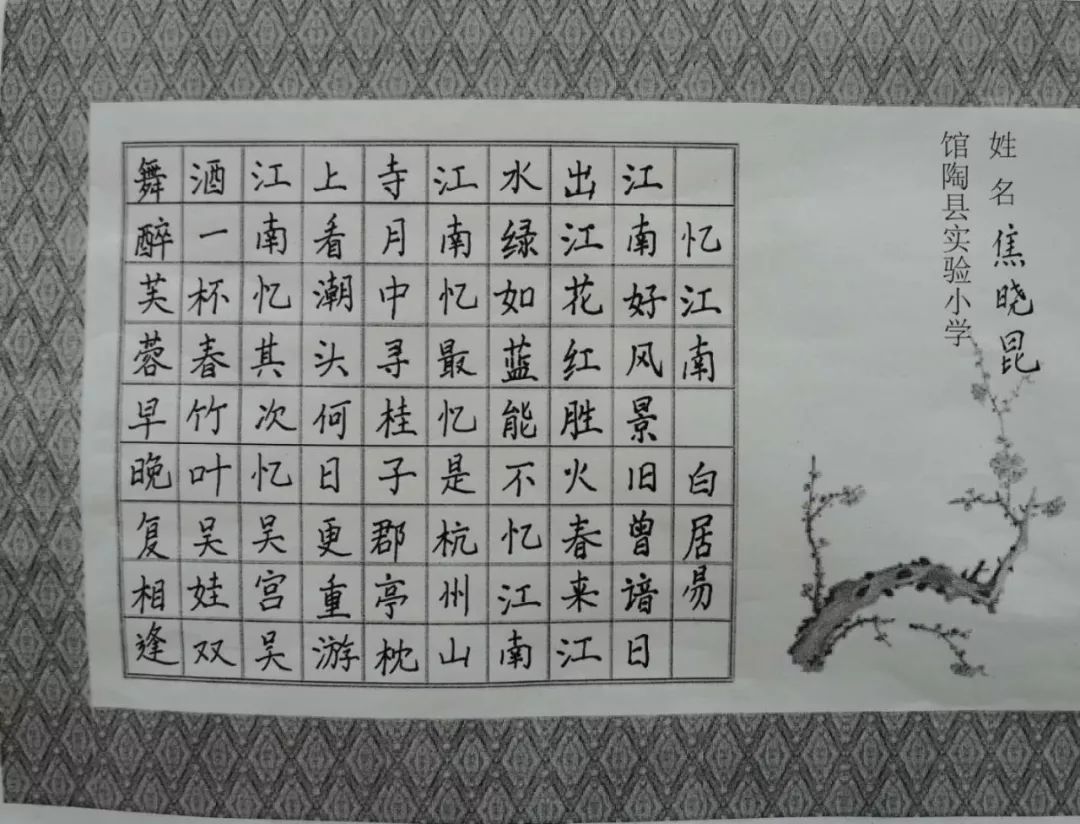 姓名 焦晓昆
馆陶县实验小学
忆江南 白居易
江南好风景旧曾谙日
出江花红胜火春来江
水绿如蓝能不忆江南
江南忆最忆是杭州山
寺月中寻桂子郡亭枕
上看潮头何日更重游
江南忆其次忆吴宫吴
酒一杯春竹叶吴娃双
舞醉芙蓉早晚复相逢